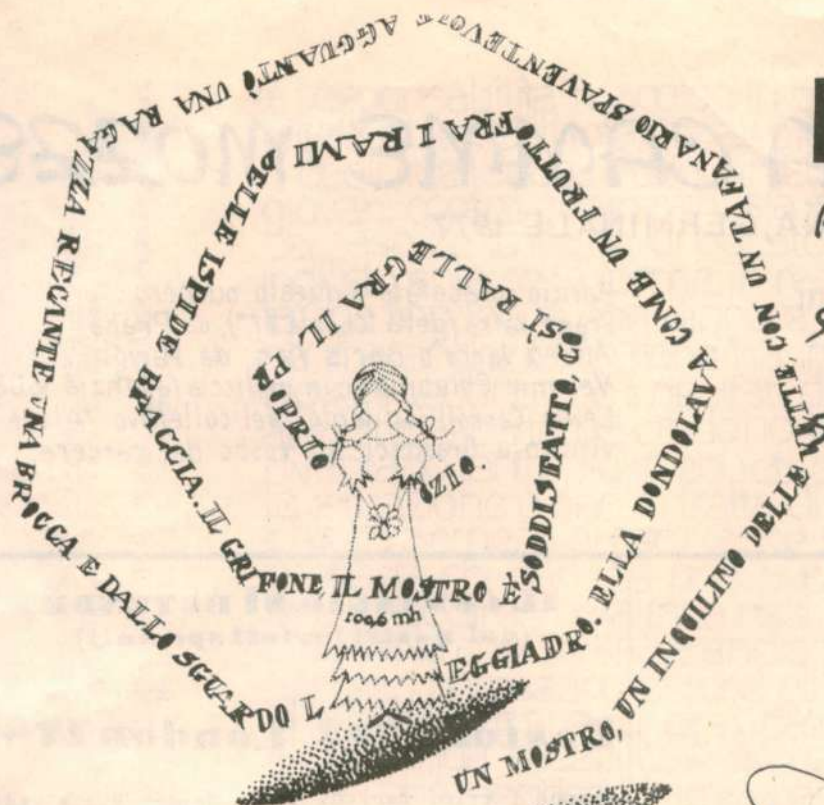 UN MOSTRO, UN INQUILINO DELLE VETTE, CON UN TAFANARIO SPAVENTEVOLE AGGUANTÒ UNA RAGAZZA RECANTE UNA BROCCA E DALLO SGUARDO LEGGIADRO. ELLA DONDOLAVA COME UN FRUTTO FRA I RAMI DELLE ISPIDE BRACCIA. IL GRIFONE, IL MOSTRO È SODDISFATTO, COSÌ RALLEGRA IL PROPRIO OZIO.
104,6 mh